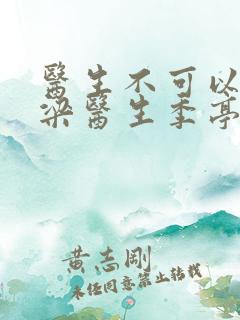 醫生不可以
梁醫生季亭
黄志剛
未经同意禁止转载